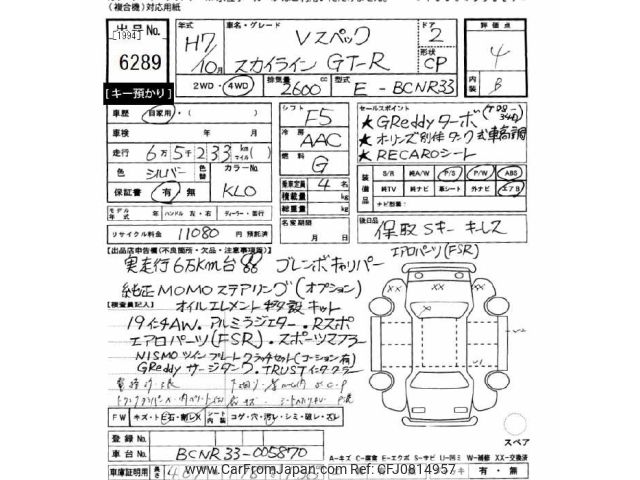 (複合機)対応用紙
出品 No.
[1994]
6289
[キー預かり]
年式
H7/10月
車名・グレード
Vスペック
スカイライン GT-R
ドア
2
形状
CP
評価点
4
内装
B
2WD・4WD
排気量
2600 cc
型式
E - BCNR33
車歴 自家用・( )
車検 年 月
走行 6万5千233 km マイル ( )
色 シルバー 色替
カラーNo.
KL0
保証書 有・無
シフト
F5
冷房
AAC
燃料
G
乗車定員 4 名
積載量 kg
総重量 kg
セールスポイント
★ GReddy ターボ (T08-34D)
★ オーリンズ別体タンク式車高調
★ RECAROシート
装備品
S/R 純A/W P/S P/W ABS
純TV 純ナビ 革シート 外ナビ エアB
ナビ型番
モデル年式 年 ハンドル 左・右 ディーラー・並行
リサイクル料金 11080 円 預託済
名変期限
月 日
後日品
保取 Sキー キーレス
[出品店申告欄(不良箇所・欠品・注意事項等)]
エアロパーツ(FSR)
実走行6万km台!! ブレンボキャリパー
純正MOMOステアリング(オプション)
[検査員記入]
オイルエレメント移設キット
19インチAW・アルミラジエター・Rスポ
エアロパーツ(FSR)・スポーツマフラー
NISMOツインプレートクラッチセット(コーション有)
GReddyサージタンク・TRUSTインタクーラー
FW キズ・ト・石・割・X シート内装 コゲ・穴・汚レ・シミ・破レ・スレ
スペア
登録 No.
車台 No.
BCNR33-005870
A-キズ C-腐食 E-エクボ S-サビ U-凹ミ W-補修 XX-交換済
車庫証明用 長さ
有・無
www.CarFromJapan.com Ref: CFJ0814957